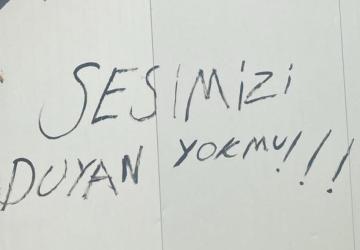 SESiMiZi
DUYAN YOKMU!!!